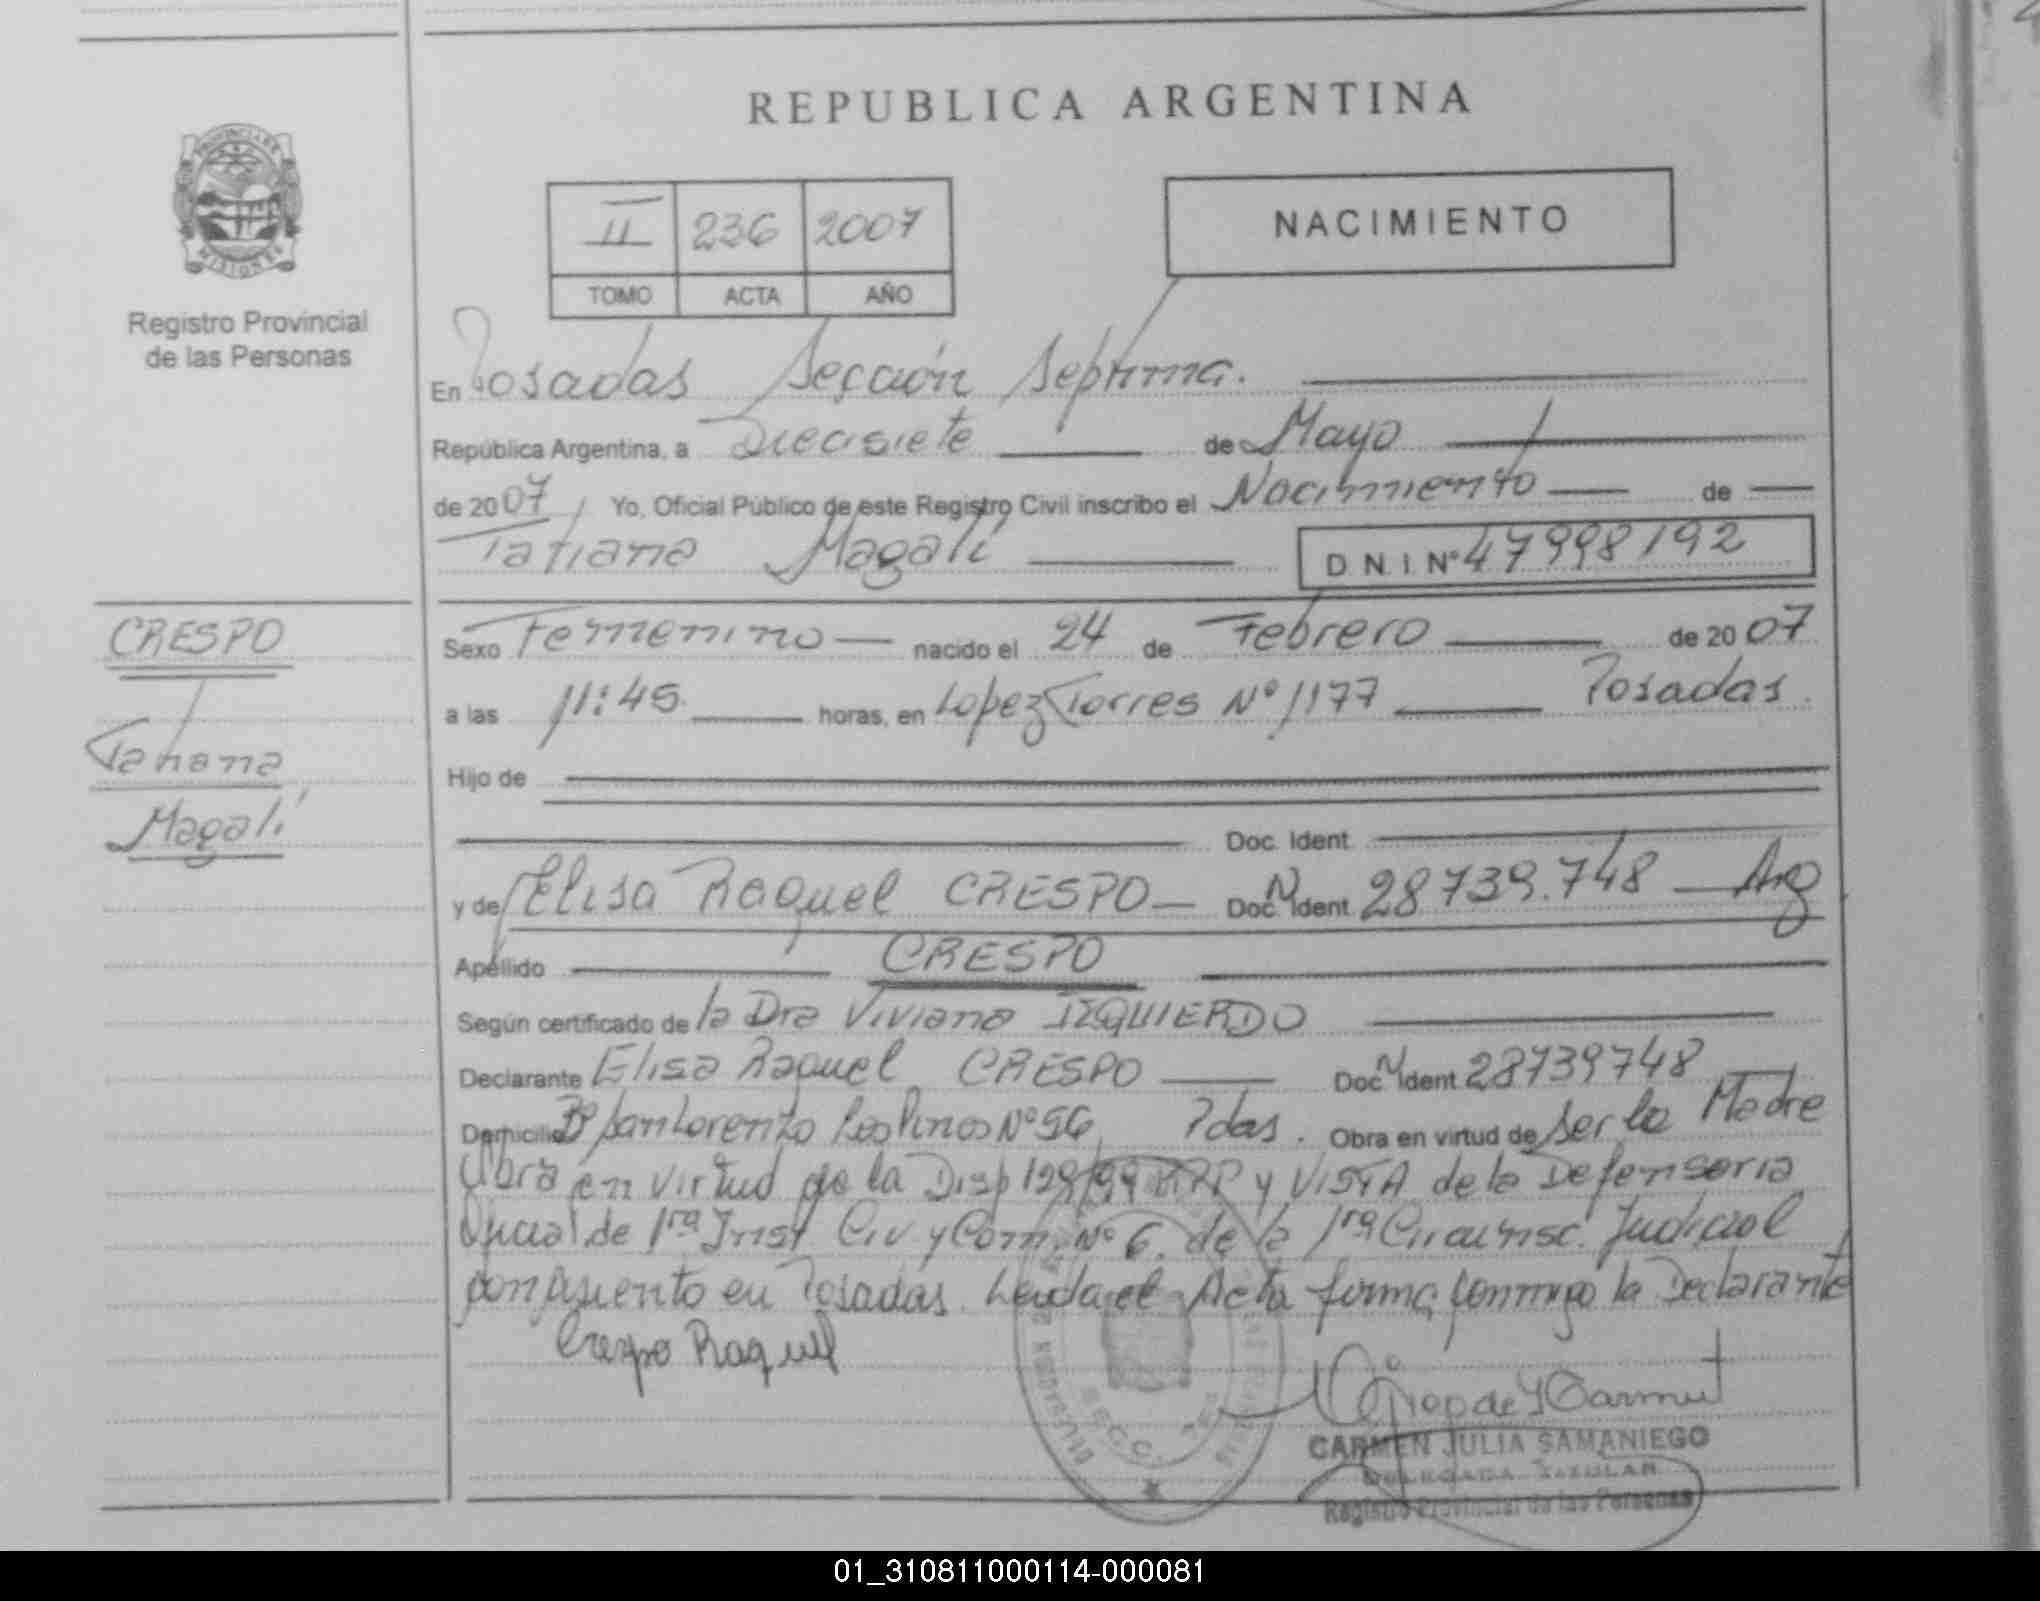 REPUBLICA ARGENTINA
PROVINCIA DE
MISIONES
Registro Provincial
de las Personas
II 236 2007
TOMO ACTA AÑO
NACIMIENTO
En Posadas Sección Septima.
República Argentina, a Diecisiete de Mayo
de 2007 Yo, Oficial Público de este Registro Civil inscribo el Nacimiento de
Tatiana Magalí D.N.I Nº 47998192
CRESPO
Tatiana
Magalí
Sexo Femenino nacido el 24 de Febrero de 2007
a las 11:45 horas, en Lopez Torres Nº 1177 Posadas.
Hijo de
Doc. Ident
y de Elisa Raquel CRESPO Doc. Ident 28739.748 Arg
Apellido CRESPO
Según certificado de la Dra Viviana IZQUIERDO
Declarante Elisa Raquel CRESPO Doc Ident 28739748
Domicilio Bº San Lorenzo Nº 56 Pdas. Obra en virtud de Ser la Madre
Obra en virtud de la Disp 129/99 RPP y VISTA de la Defensoria
Oficial de 1ra Inst Civ y Com. Nº 6. de la 1ra Circunsc. Judicial
con Asiento en Posadas. Leida el Acta firma conmigo la Declarante
Crespo Raquel
CARMEN JULIA SAMANIEGO
DELEGADA TITULAR
Registro Provincial de las Personas
01_310811000114-000081